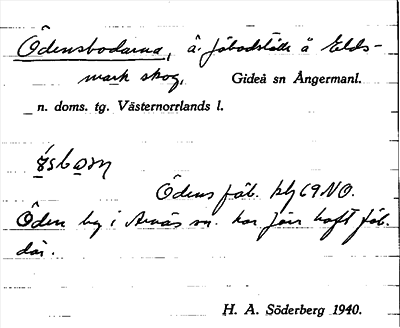 Ödensbodarna, å. fäbodställe å Elds-
mark skog, Gideå sn Ångermanl.
n. doms. tg. Västernorrlands l.
Ödens fäb. kbl 69 NO.
Öden by i Arnäs sn. har förr haft fäb.
där.
H. A. Söderberg 1940.